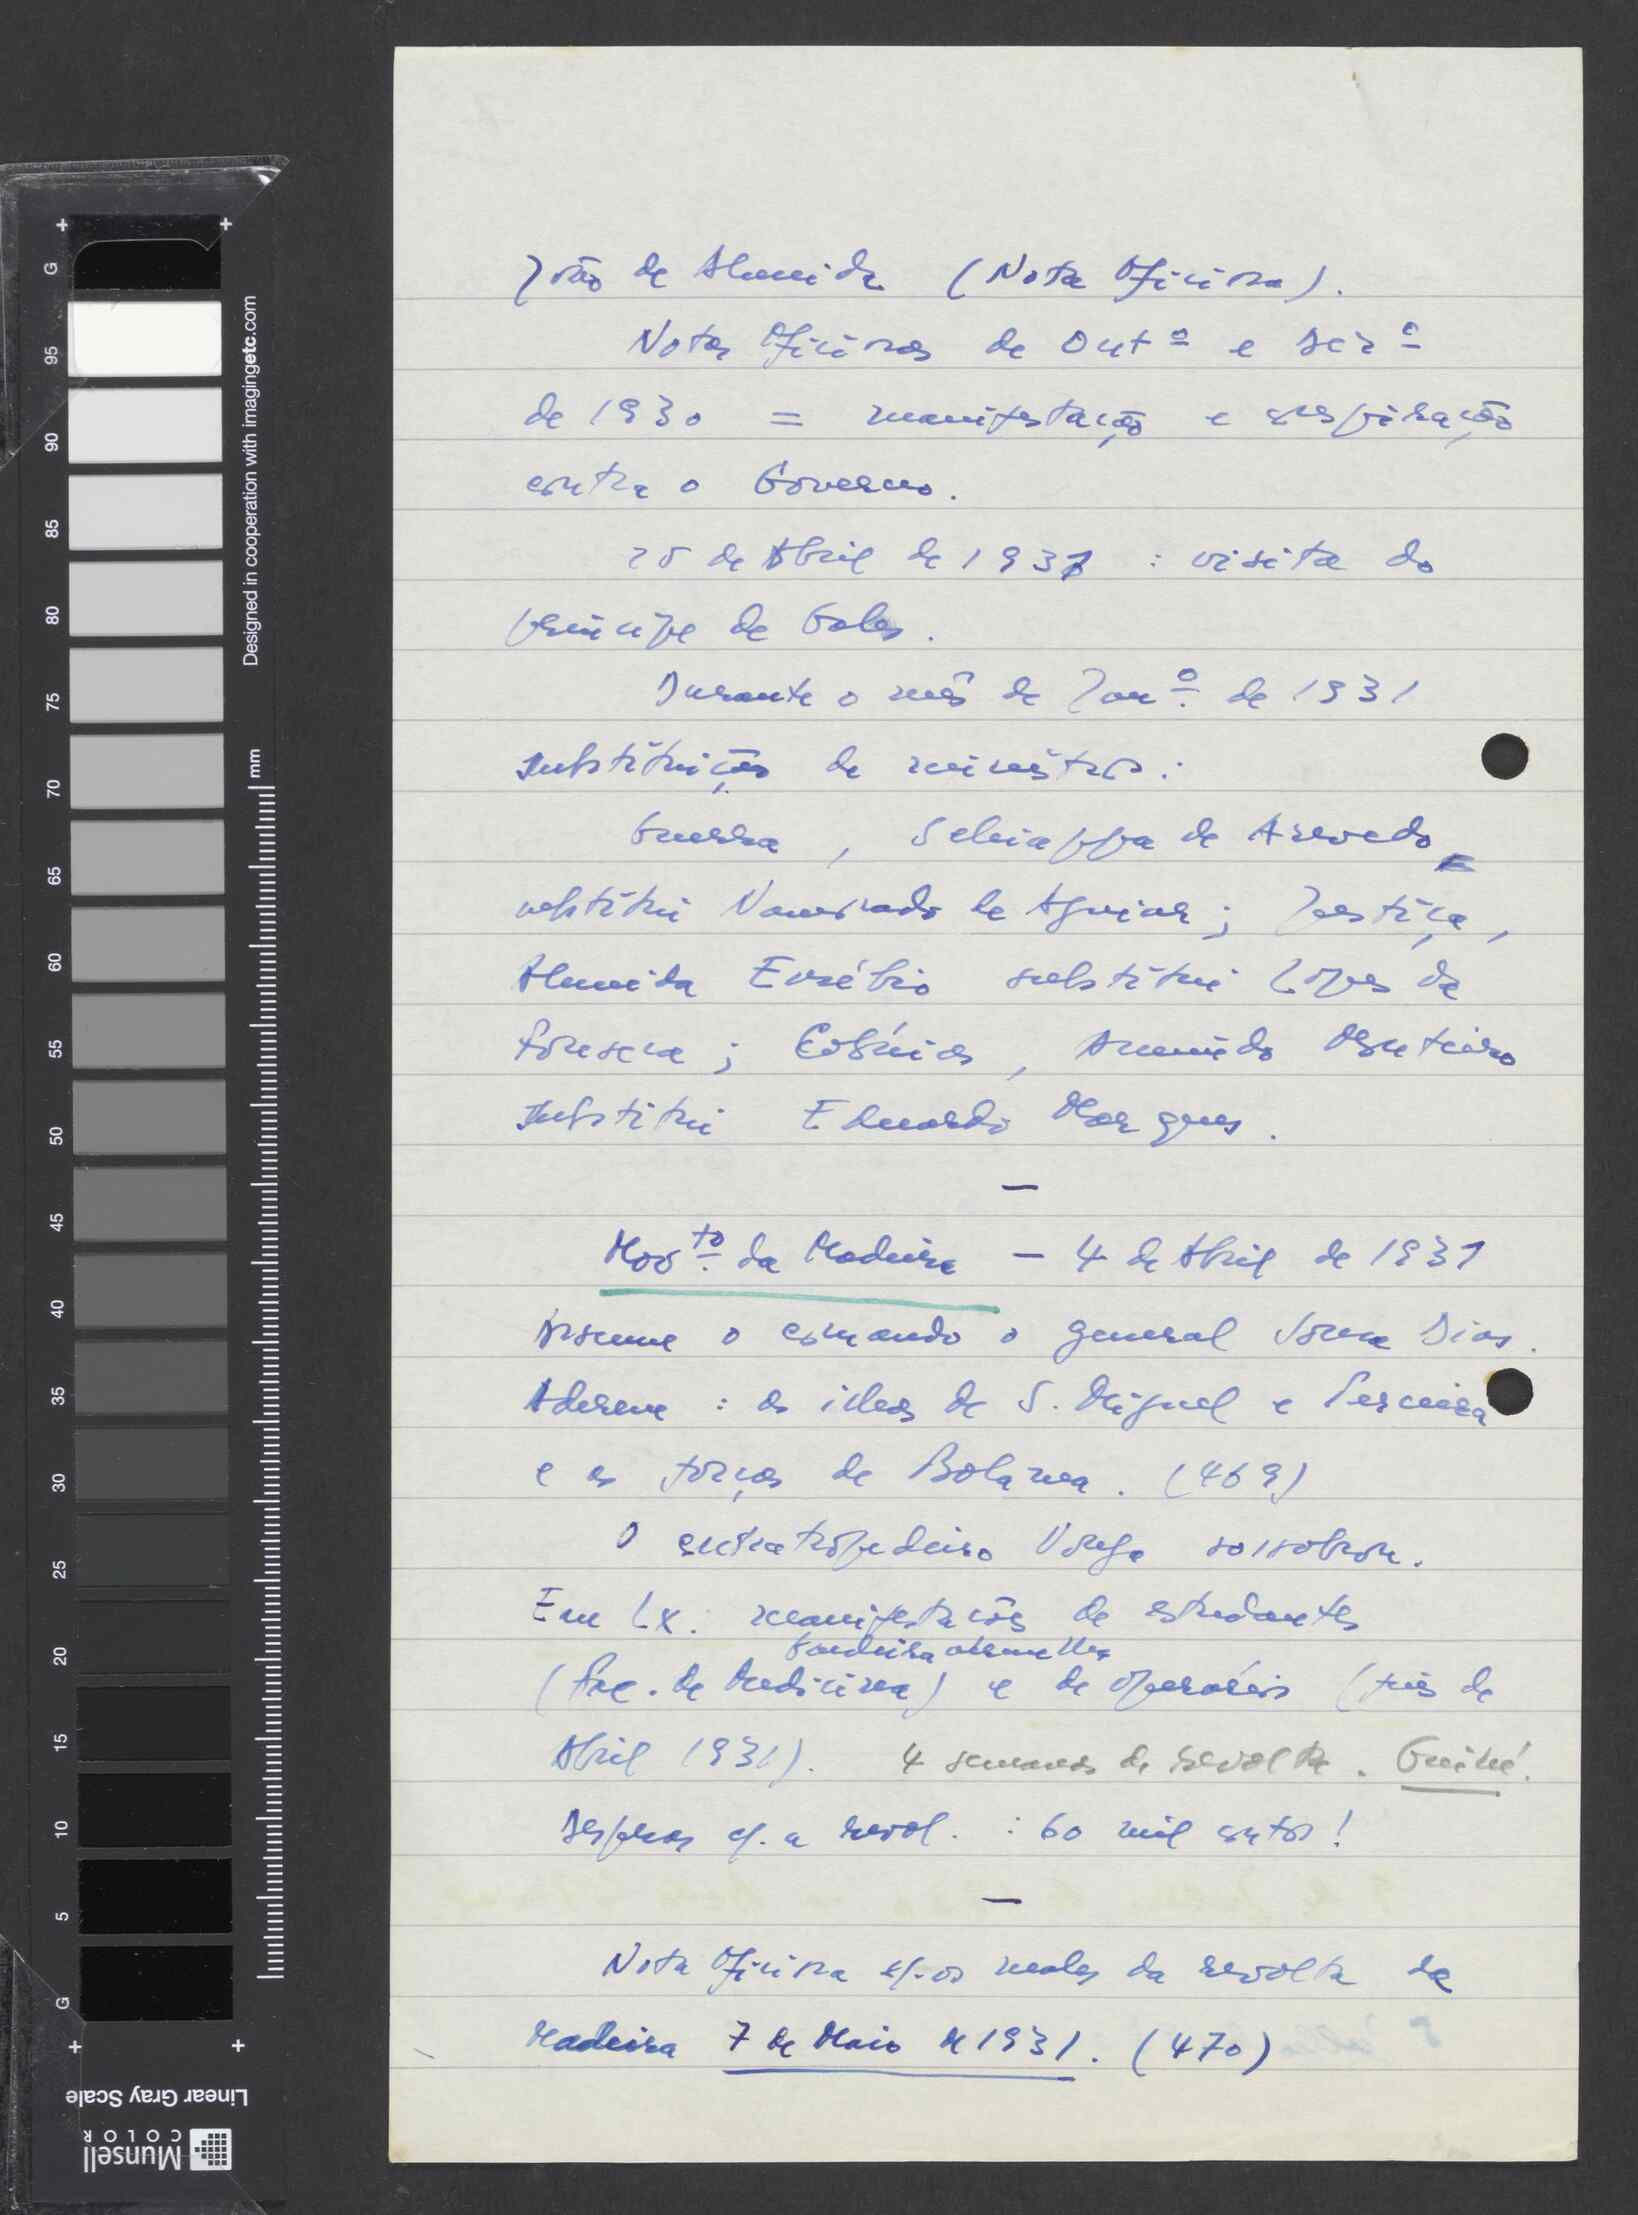 João de Almeida (Nota Oficiosa).
Notas Oficiosas de Outº e Dezº
de 1930 = manifestação e conspiração
contra o Governo.
25 de Abril de 1931 : visita do
príncipe de Gales.
Durante o mês de Janº de 1931
substituição de ministros:
Guerra, Schiappa de Azevedo
substitui Namorado de Aguiar; Justiça,
Almeida Eusébio substitui Lopes da
Fonseca; Colónias, Armindo Monteiro
substitui Eduardo Marques.
—
Movto da Madeira — 4 de Abril de 1931
Assume o comando o general Sousa Dias.
Aderem : as ilhas de S. Miguel e Terceira
e as forças de Bolama. (469)
O contratorpedeiro Vouga sossobrou.
Em Lx. manifestações de estudantes
bandeira vermelha
(Fac. de Medicina) e de operários (fins de
Abril 1931). 4 semanas de revolta. Guiné.
Despesas c/. a revol. : 60 mil contos!
—
Nota Oficiosa c/. os males da revolta da
Madeira 7 de Maio de 1931. (470)
G 95 90 85 80 75 70 65 60 55 50 45 40 35 30 25 20 15 10 5 G
Designed in cooperation with imagingetc.com
mm
Linear Gray Scale
Munsell
COLOR